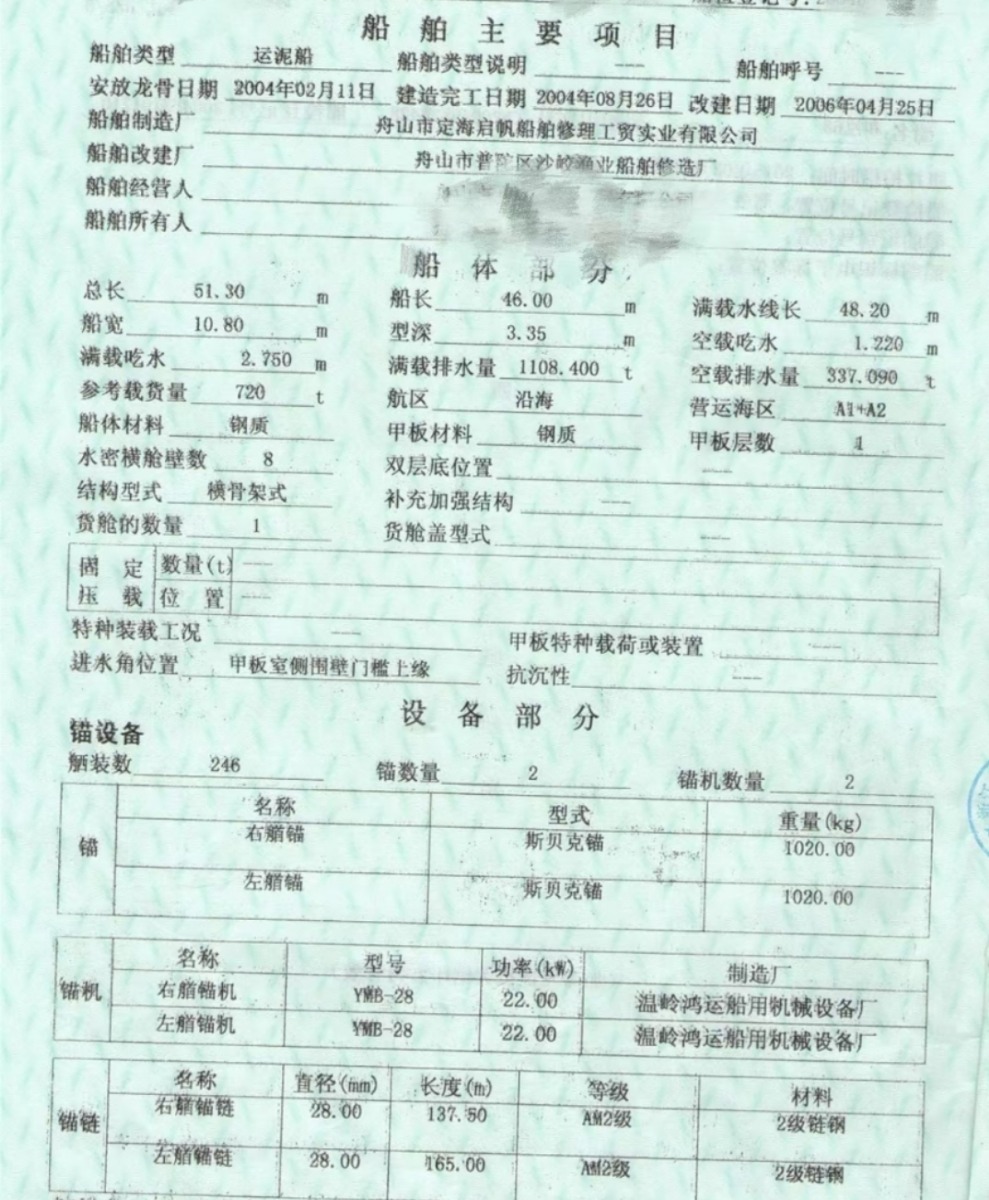 船舶主要项目
船舶类型 运泥船 船舶类型说明 --- 船舶呼号 ---
安放龙骨日期 2004年02月11日 建造完工日期 2004年08月26日 改建日期 2006年04月25日
船舶制造厂 舟山市定海启帆船舶修理工贸实业有限公司
船舶改建厂 舟山市普陀区沙蛟渔业船舶修造厂
船舶经营人
船舶所有人
船体部分
总长 51.30 m 船长 46.00 m 满载水线长 48.20 m
船宽 10.80 m 型深 3.35 m 空载吃水 1.220 m
满载吃水 2.750 m 满载排水量 1108.400 t 空载排水量 337.090 t
参考载货量 720 t 航区 沿海 营运海区 A1+A2
船体材料 钢质 甲板材料 钢质 甲板层数 1
水密横舱壁数 8 双层底位置 ---
结构型式 横骨架式 补充加强结构 ---
货舱的数量 1 货舱盖型式 ---
固定 数量(t) ---
压载 位置 ---
特种装载工况 --- 甲板特种载荷或装置 ---
进水角位置 甲板室侧围壁门槛上缘 抗沉性 ---
设备部分
锚设备
舾装数 246 锚数量 2 锚机数量 2
名称 型式 重量(kg)
锚 右艏锚 斯贝克锚 1020.00
左艏锚 斯贝克锚 1020.00
名称 型号 功率(kW) 制造厂
锚机 右艏锚机 YMB-28 22.00 温岭鸿运船用机械设备厂
左艏锚机 YMB-28 22.00 温岭鸿运船用机械设备厂
名称 直径(mm) 长度(m) 等级 材料
锚链 右艏锚链 28.00 137.50 AM2级 2级链钢
左艏锚链 28.00 165.00 AM2级 2级链钢